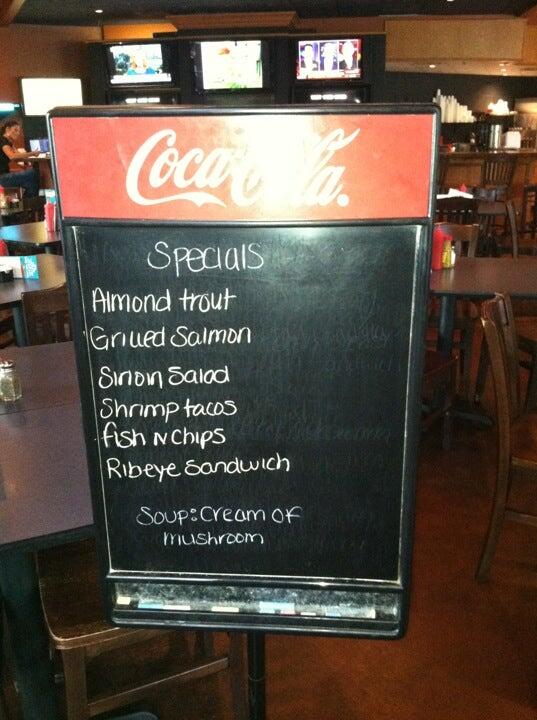 Coca-Cola.
Specials
Almond trout
Grilled Salmon
Sirloin Salad
Shrimp tacos
fish N Chips
Ribeye Sandwich
Soup: Cream OF
mushroom